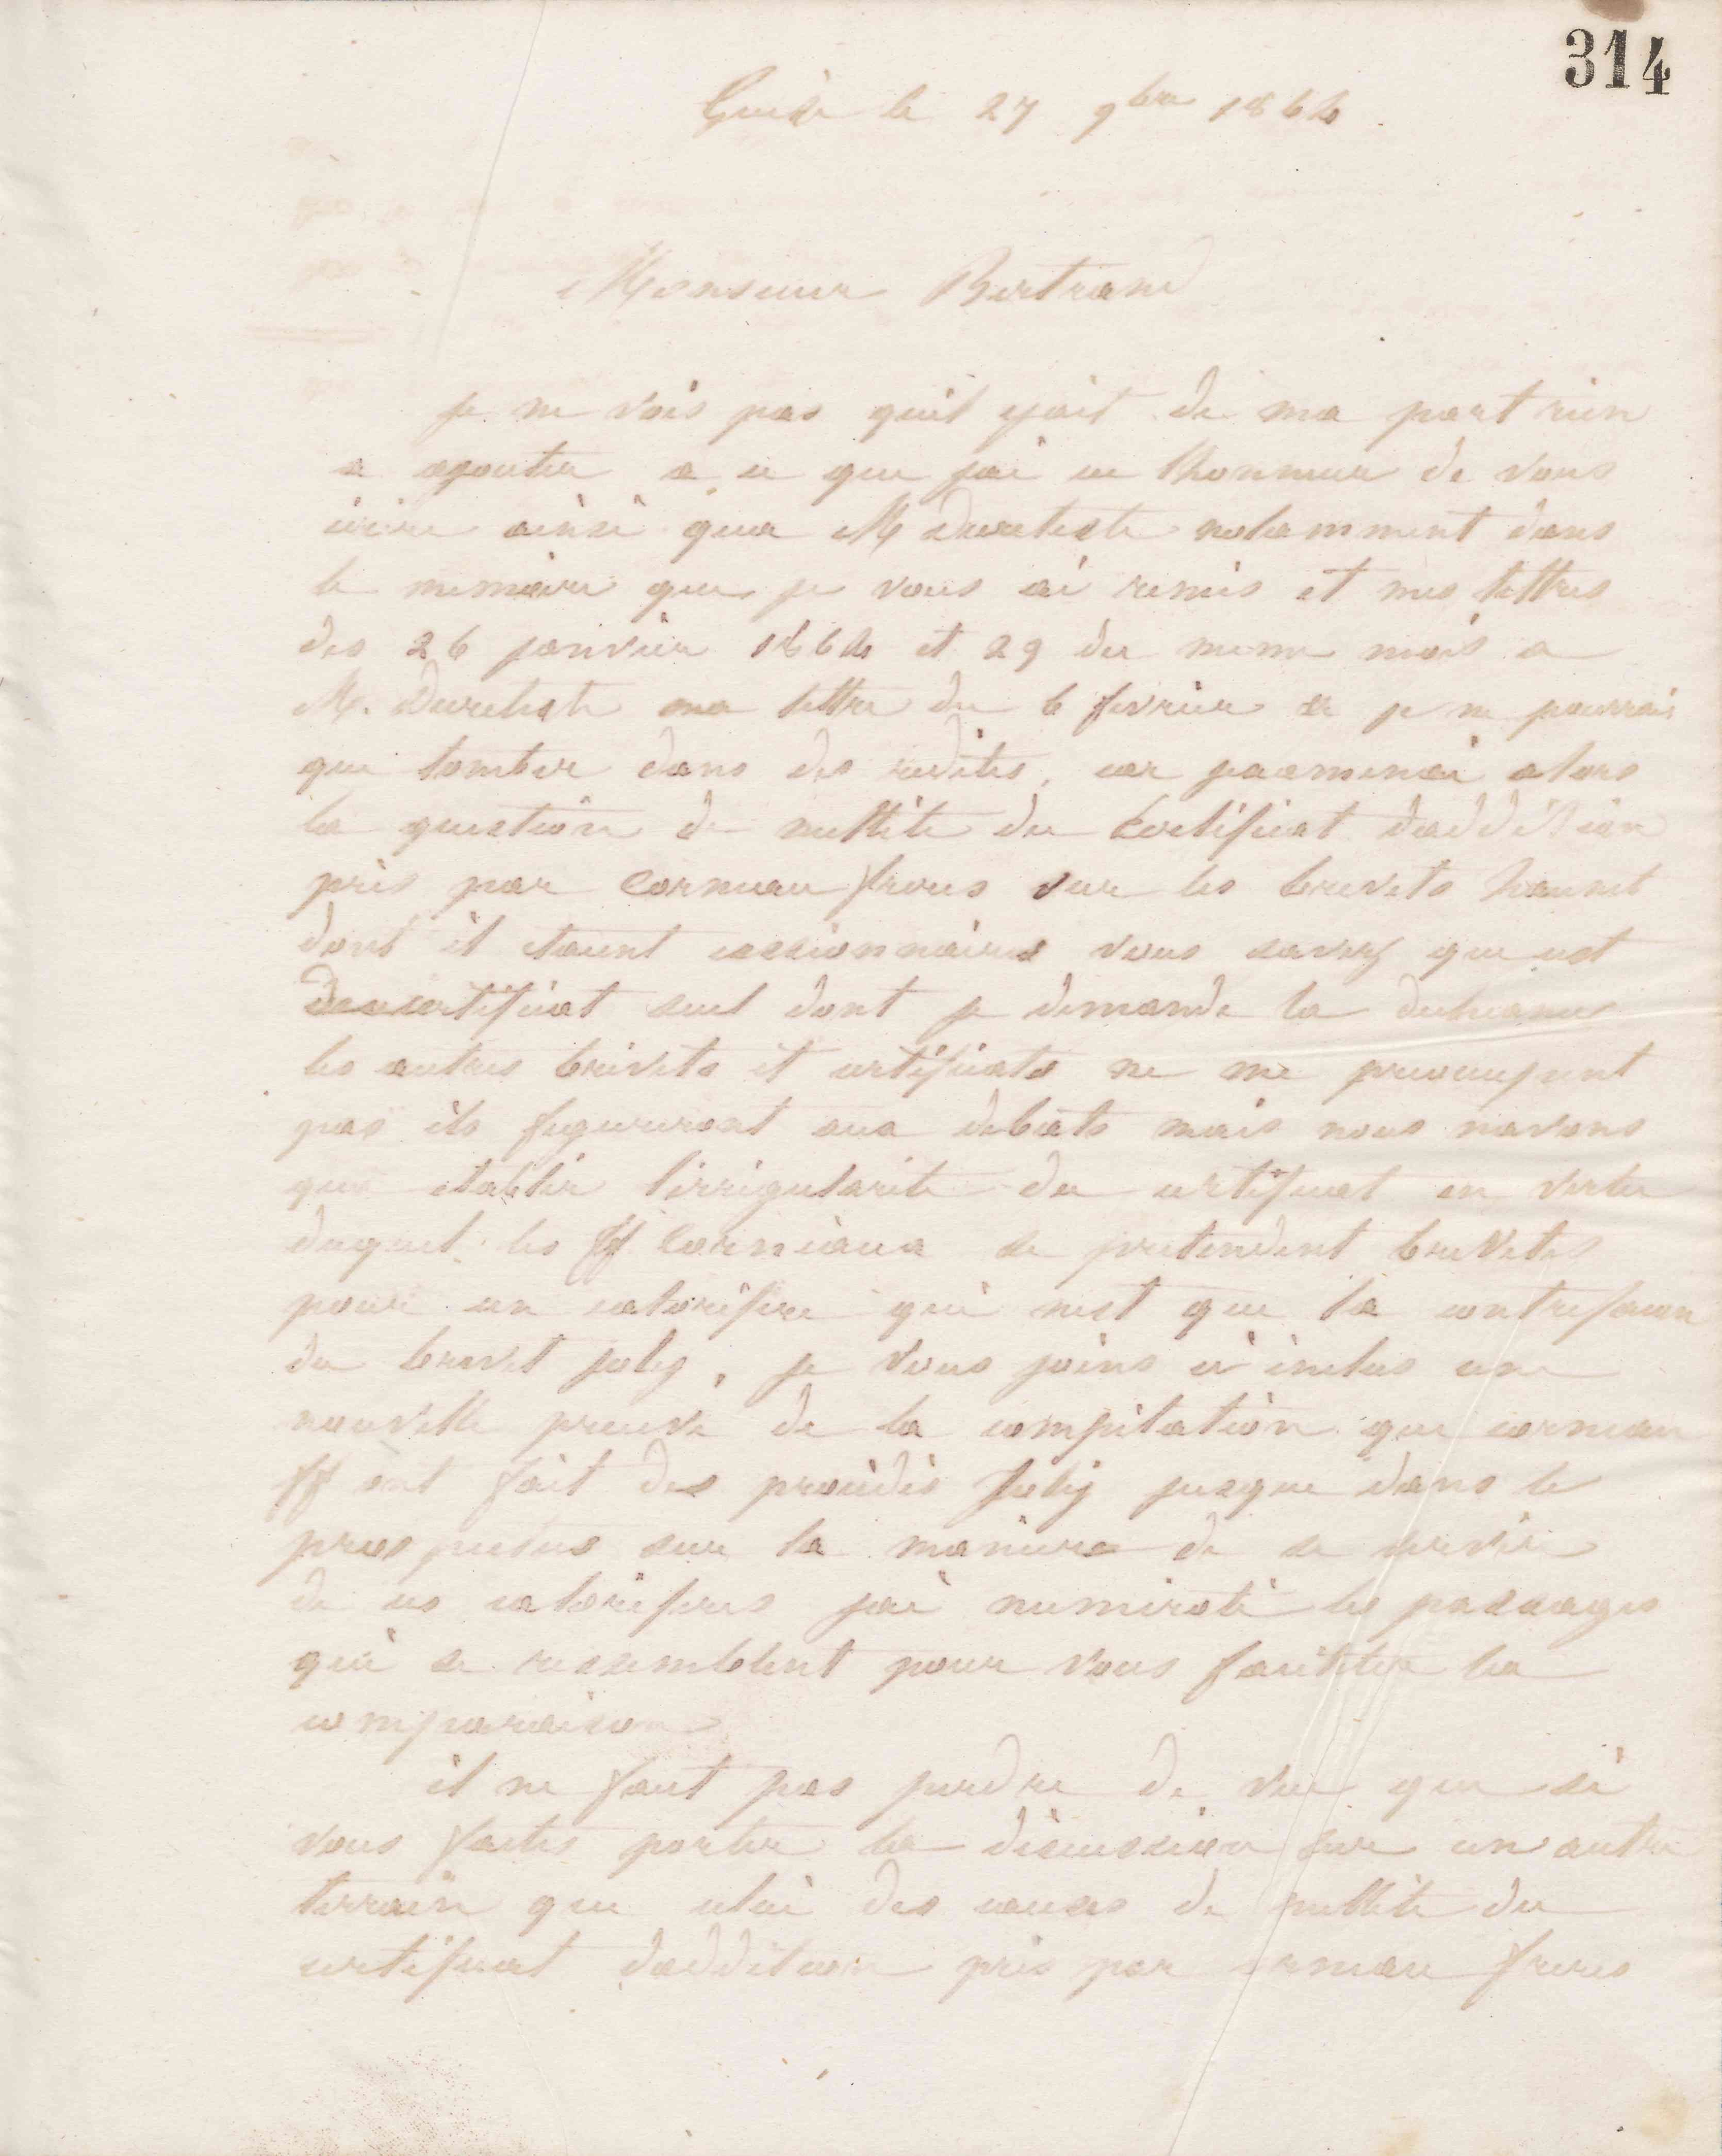 314
Guise le 27 9bre 1864
Monsieur Bertrand
je ne vois pas quil yait de ma part rien
a ajouter a ce que jai eu lhonneur de vous
écrire ainsi qua M Dureteste notamment dans
le memoire que je vous ai remis et mes lettres
des 26 janvier 1864 et 29 du meme mois a
M. Dureteste ma lettre du 6 fevrier et je ne pourrais
que tomber dans des redites, car jexaminai alors
la question de nullite du Certificat daddition
pris par Corneau freres sur les brevets
dont il etaient cessionnaires vous savez que cest
certificat seul dont je demande la decheance
les autres brevets et certificats ne me preoccupent
pas ils figureront aux debats mais nous navons
qua etablir lirregularite du certificat en vertu
duquel les ff Corneaux se pretendent brevetes
pour un calorifere qui nest que la contrefacon
du brevet joly, je vous joins ci inclus une
nouvelle preuve de la compilation que corneau
ff ont fait des procédés Joly jusque dans le
prospectus sur la maniere de se servir
de ces caloriferes jai numeroté les passages
qui se ressemblent pour vous faciliter la
comparaison
il ne faut pas perdre de vue que si
vous faites porter la discussion sur un autre
terrain que celui des causes de nullite du
certificat daddition pris par corneau freres